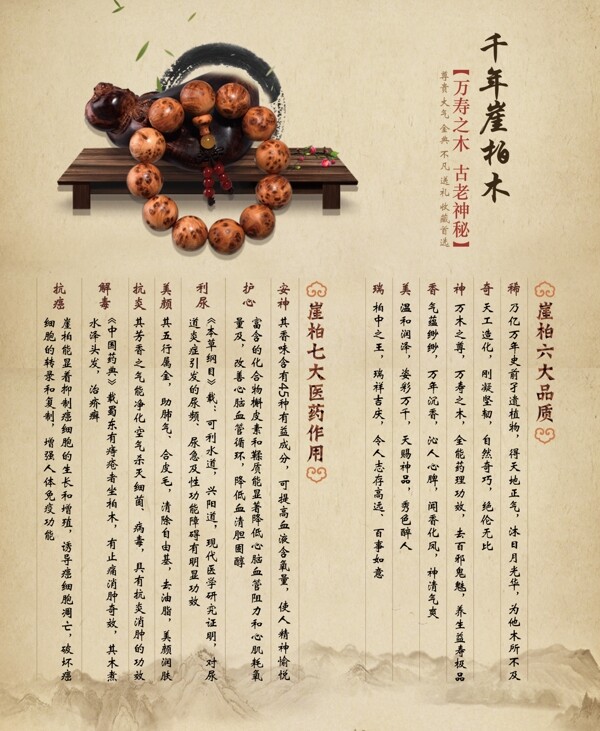 千年崖柏木
【万寿之木 古老神秘】
尊贵大气 金典不凡 送礼收藏首选
崖柏六大品质
稀 乃亿万年史前孑遗植物，得天地正气，沐日月光华，为他木所不及
奇 天工造化，刚凝坚韧，自然奇巧，绝伦无比
神 万木之尊，万寿之木，全能药理功效，去百邪鬼魅，养生益寿极品
香 气蕴缈缈，万年沉香，沁人心脾，闻香化凤，神清气爽
美 温和润泽，姿彩万千，天赐神品，秀色醉人
瑞 柏中之王，瑞祥吉庆，令人志存高远、百事如意
崖柏七大医药作用
安神 其香味含有45种有益成分，可提高血液含氧量，使人精神愉悦
护心 富含的化合物槲皮素和鞣质能显著降低心脑血管阻力和心肌耗氧
量及，改善心脑血管循环，降低血清胆固醇
利尿 《本草纲目》载：可利水道，兴阳道，现代医学研究证明，对尿
道炎症引发的尿频、尿急及性功能障碍有明显功效
美颜 其五行属金，助肺气、合皮毛，清除自由基，去油脂，美颜润肤
抗炎 其芳香之气能净化空气杀灭细菌、病毒，具有抗炎消肿的功效
解毒 《中国药典》载蜀东有痔疮者坐柏木，有止痛消肿奇效，其木煮
水泽头发，治疥癣
抗癌 崖柏能显着抑制癌细胞的生长和增殖，诱导癌细胞凋亡，破坏癌
细胞的转录和复制，增强人体免疫功能